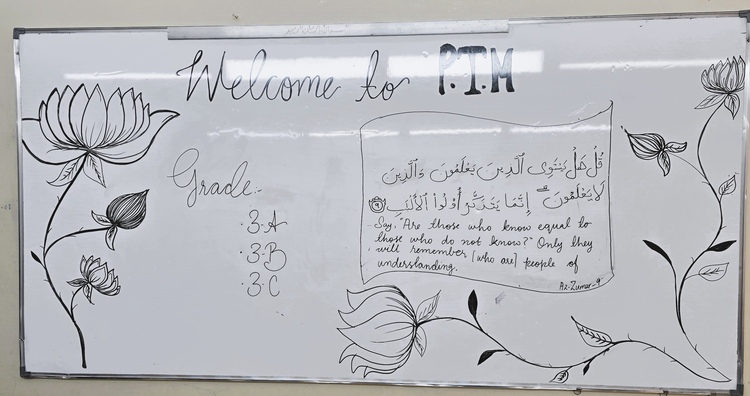 Welcome to P.T.M
Grade:-
3-A
3-B
3-C
قُلْ هَلْ يَسْتَوِى ٱلَّذِينَ يَعْلَمُونَ وَٱلَّذِينَ
لَا يَعْلَمُونَ ۗ إِنَّمَا يَتَذَكَّرُ أُو۟لُوا۟ ٱلْأَلْبَـٰبِ ٩
Say, "Are those who know equal to
those who do not know?" Only they
will remember [who are] people of
understanding.
Az-Zumar-9